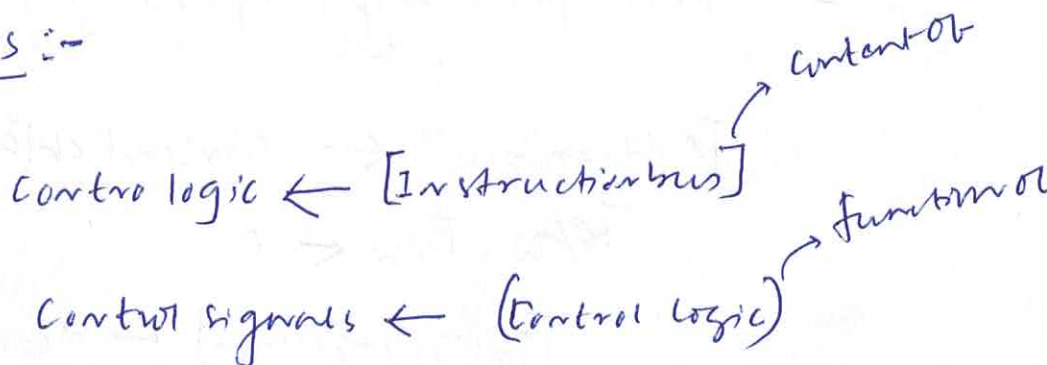 s :-
content of
Contro logic ← [Instruction bus]
function of
Control signals ← (Control logic)